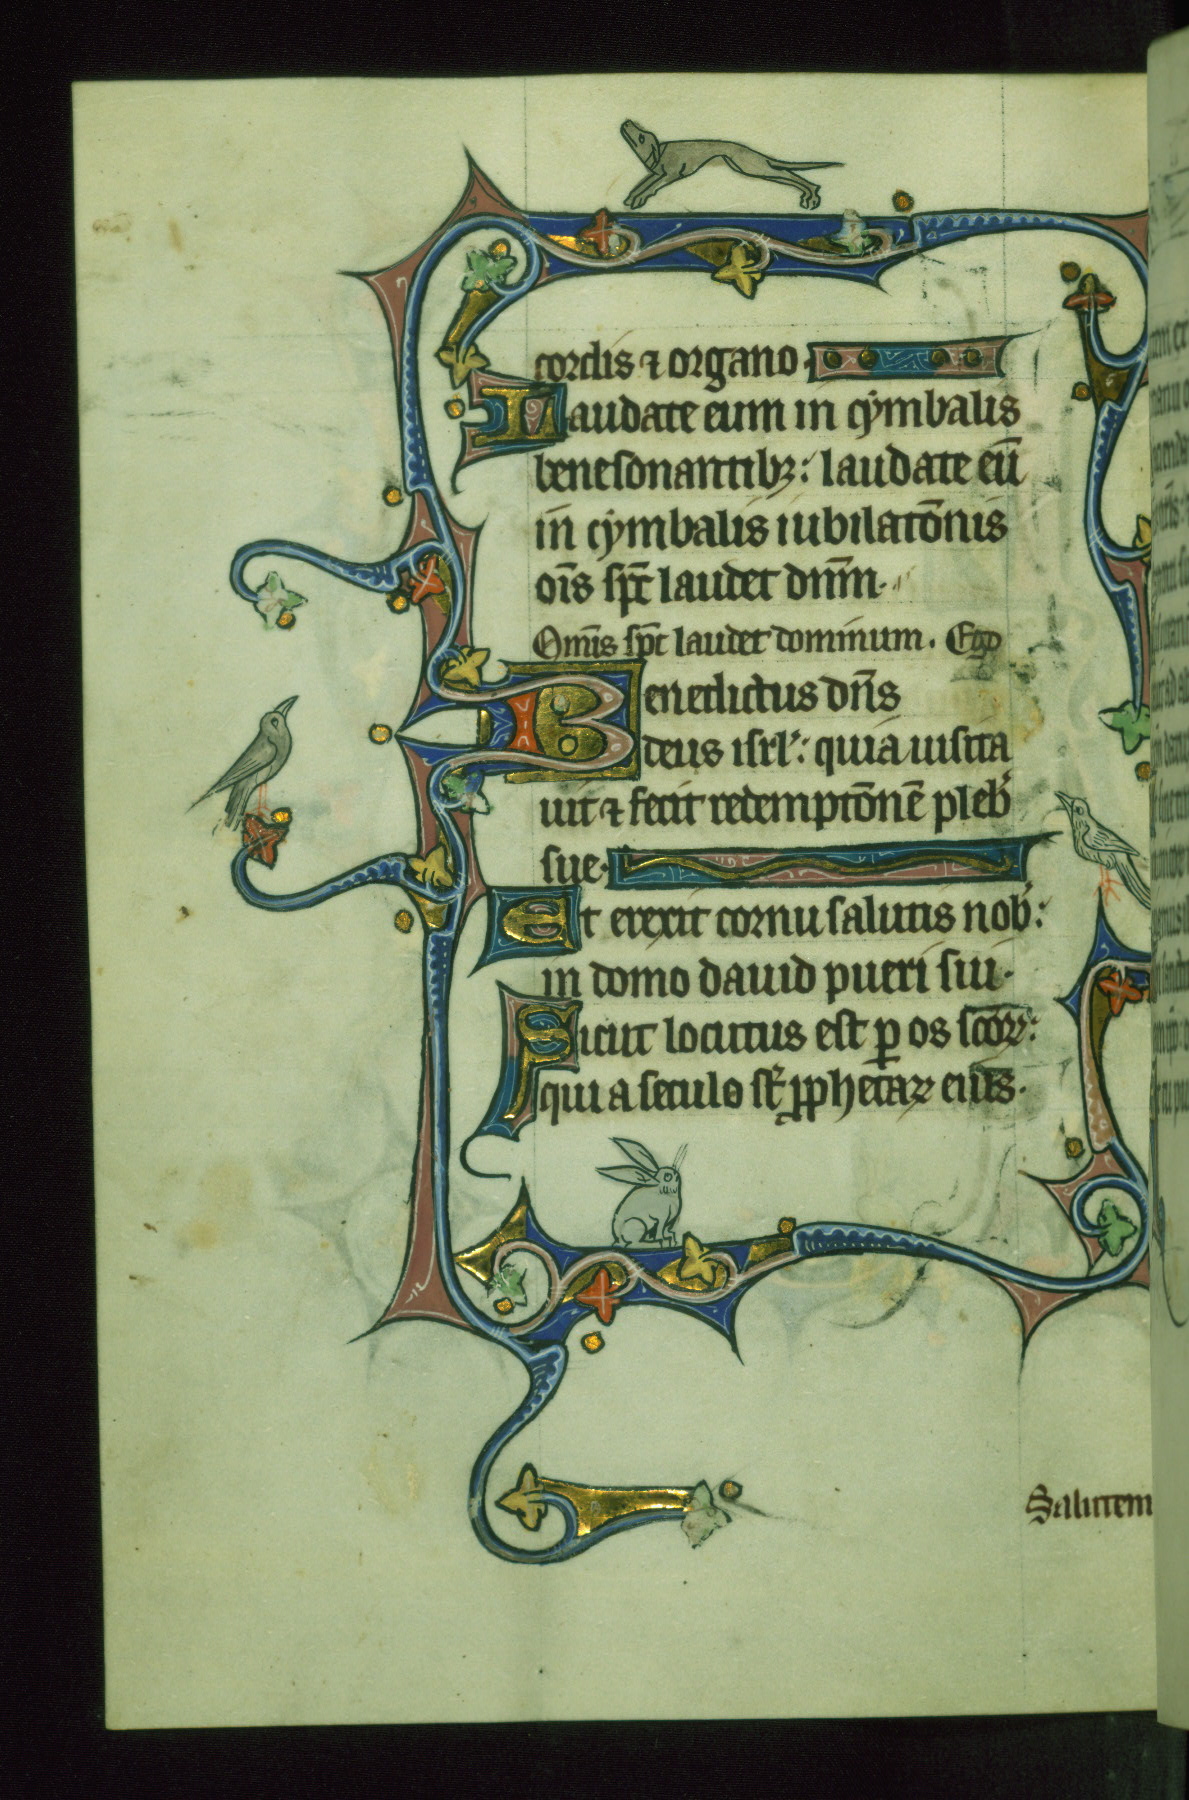 cordis ⁊ organo.
Laudate eum in cymbalis
benesonantibꝫ: laudate eū
in cymbalis iubilatōnis
oīs sp̄c laudet dnm̄.
Om̄is sp̄c laudet dominum. Ego
Benedictus dn̄s
deus isrl': quia uisita
uit ⁊ fecit redemptōnē pleb'
sue.
Et erexit cornu salutis nob':
in domo dauid pueri sui.
Sicut locutus est ꝑ os sc̄oꝝ:
qui a seculo st' ꝓphetaꝝ eius.
Salutem